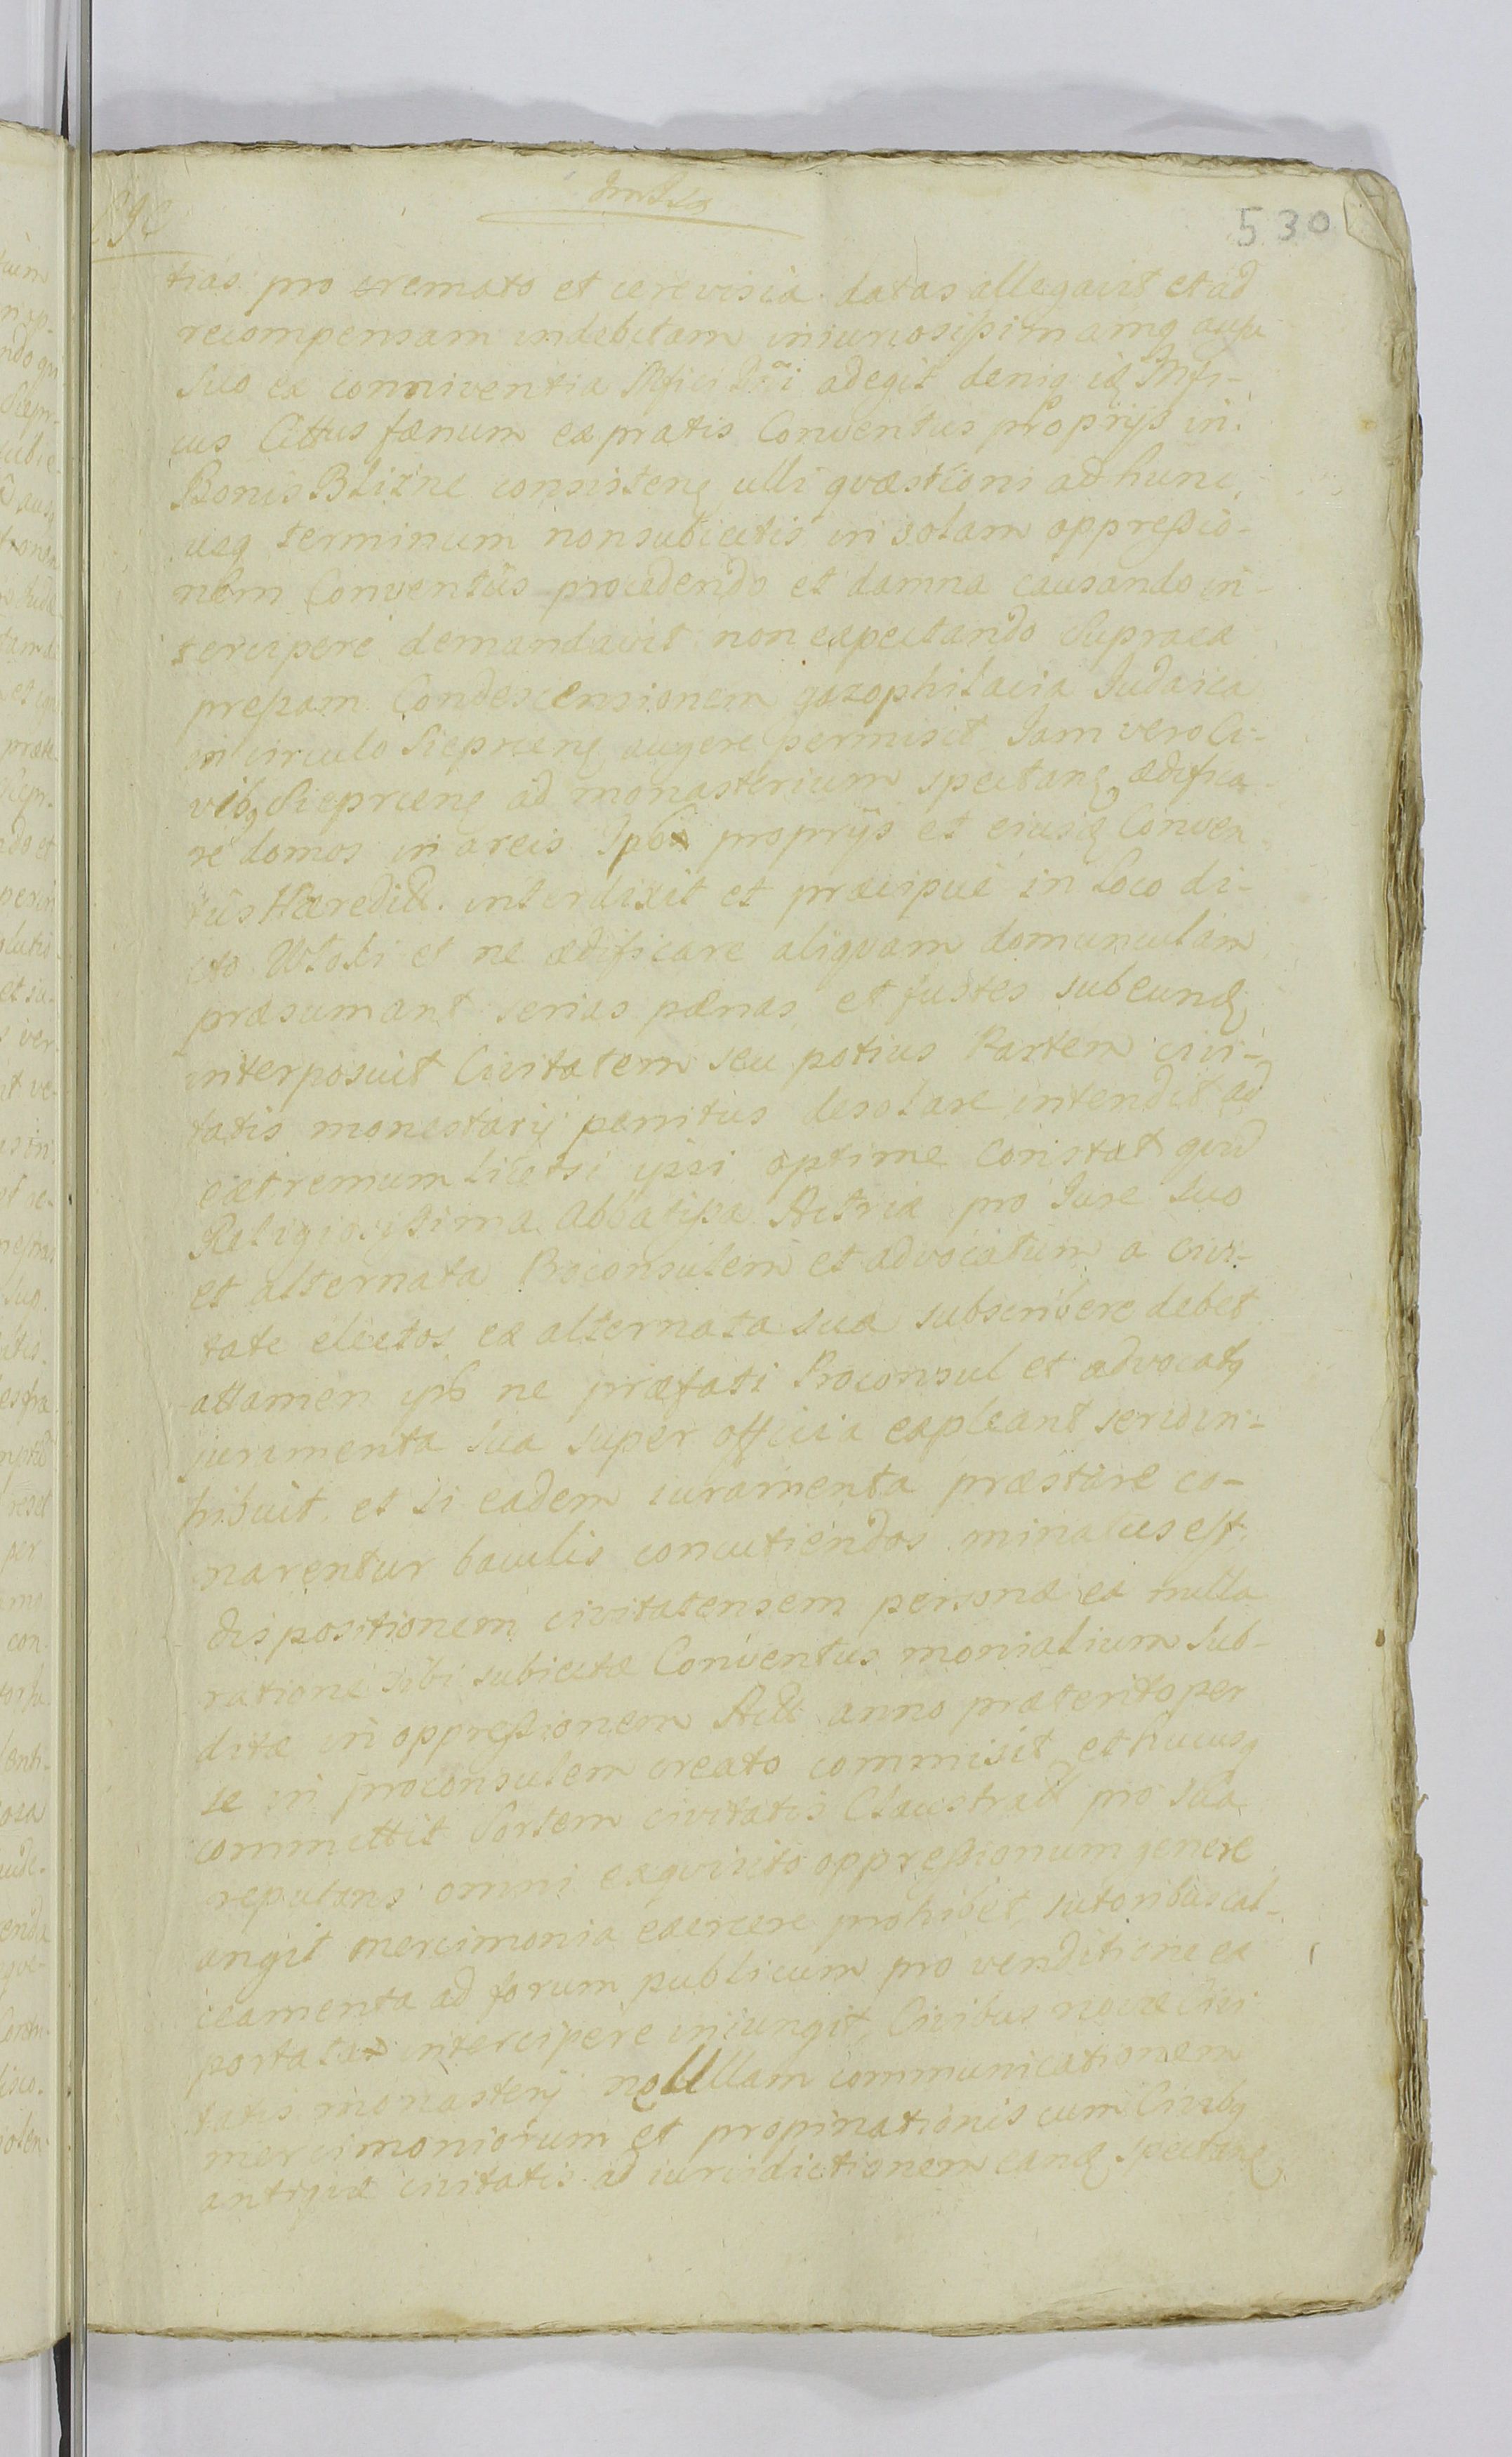 530
tias pro cremato et cerevisia datas allegavit et ad
recompensam indebitam iniuriosissimamq ausu
suo ex conniventia Mfici Dni adegit deniq id Mfi-
cus Cittus fænum ex pratis Conventus proprijs in
Bonis Blizne consisten ulli quæstioni ad hunc
usq terminum non subiectis in solam oppressio-
nem Conventus procedendo et damna causando in-
tercipere demandavit non expectando Supraex
pressam Condescensionem gazophilacia Iudaica
in circulo Siepricen augere permisit Iam vero Ci-
vibq Siepricen ad monasterium spectan ædifica-
re domos in areis proprijs et eiusd Conven
tus Hæredit. interdixit et præcipue in loco di-
cto Wtoki et ne ædificare aliquam domunculam
præsumant serias pænas et fustes subeund
interposuit Civitatem seu potius Partem civi-
tatis monastarij penitus desolare intendit ad
extremum licetsi ipsi optime constat quod
Religiosissima Abbatissa Actrix pro Iure suo
et alternata Proconsulem et advocatum a civi-
tate electos ex alternata sua subscribere debet
attamen ipsis ne præfati Proconsul et advocatq
juramenta sua super officia expleant serio in-
hibuit et si eadem iuramenta præstare co-
narentur baculis concutiendos minatus est.
dispositionem civitatensem personæ ex nulla
ratione sibi subiectæ Conventus monialium sub-
ditæ in oppressionem Act anno præterito per
se in proconsulem creato commisit et hucusq
committit Sortem civitatis Claustral pro sua
reputans omni exquisito oppressionum genere
angit mercimonia exercere prohibet, sutoribus cal-
ceamenta ad forum publicum pro venditione ex
portata intercipere iniungit, Civibus novæ Civi
tatis monasterij nullam communicationem
mercimoniorum et propinationis cum Civibq
antiquæ civitatis ad iurisdictionem eand spectan